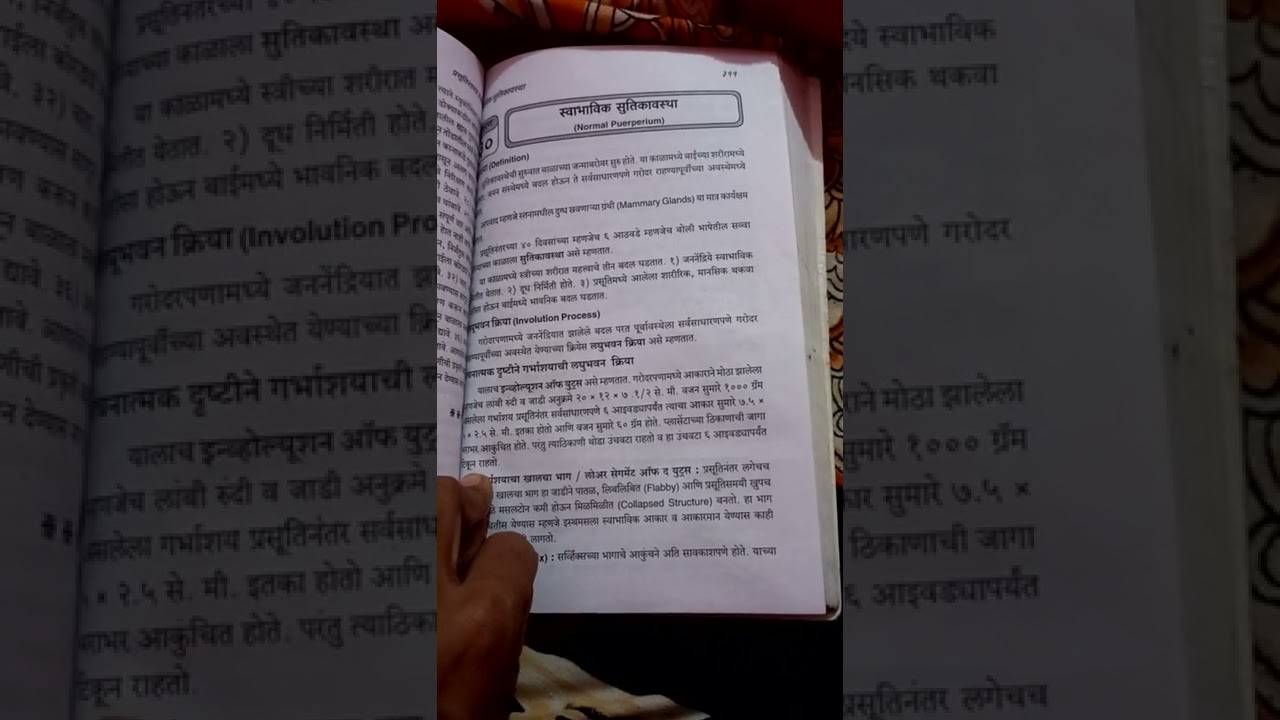 ३११
सुतिकावस्था
स्वाभाविक सुतिकावस्था
(Normal Puerperium)
(Definition)
सुतिकावस्थेची सुरुवात बाळाच्या जन्माबरोबर सुरु होते. या काळामध्ये बाईच्या शरीरामध्ये
संस्थेमध्ये बदल होऊन ते सर्वसाधारणपणे गरोदर राहण्यापूर्वीच्या अवस्थेमध्ये
अपवाद म्हणजे स्तनामधील दुग्ध स्रवणाऱ्या ग्रंथी (Mammary Glands) या मात्र कार्यक्षम
प्रसूतिनंतरच्या ४० दिवसांच्या म्हणजेच ६ आठवडे म्हणजेच बोली भाषेतील सव्वा
काळाला सुतिकावस्था असे म्हणतात.
या काळामध्ये स्त्रीच्या शरीरात महत्त्वाचे तीन बदल घडतात. १) जननेंद्रिये स्वाभाविक
येतात. २) दूध निर्मिती होते. ३) प्रसूतिमध्ये आलेला शारीरिक, मानसिक थकवा
होऊन बाईमध्ये भावनिक बदल घडतात.
क्रिया (Involution Process)
गरोदरपणामध्ये जननेंद्रियात झालेले बदल परत पूर्वावस्थेला सर्वसाधारणपणे गरोदर
अवस्थेत येण्याच्या क्रियेस लघुभवन क्रिया असे म्हणतात.
दृष्टीने गर्भाशयाची लघुभवन क्रिया
यालाच इन्व्होल्यूशन ऑफ युट्रस असे म्हणतात. गरोदरपणामध्ये आकाराने मोठा झालेला
म्हणजेच लांबी रुंदी व जाडी अनुक्रमे २० × १२ × ७.१/२ से. मी. वजन सुमारे १००० ग्रॅम
असलेला गर्भाशय प्रसूतिनंतर सर्वसाधारणपणे ६ आइवड्यापर्यंत त्याचा आकार सुमारे ७.५ ×
× २.५ से. मी. इतका होतो आणि वजन सुमारे ६० ग्रॅम होते. प्लासेंटाच्या ठिकाणाची जागा
आकुंचित होते. परंतु त्याठिकाणी थोडा उंचवटा राहतो व हा उंचवटा ६ आइवड्यापर्यंत
टिकून राहतो.
खालचा भाग / लोअर सेगमेंट ऑफ द युट्रस : प्रसूतिनंतर लगेचच
खालचा भाग हा जाडीने पातळ, लिबलिबित (Flabby) आणि प्रसूतिसमयी खुपच
मसलटोन कमी होऊन मिळमिळीत (Collapsed Structure) बनतो. हा भाग
येण्यास म्हणजे इस्थमसला स्वाभाविक आकार व आकारमान येण्यास काही
लागतो.
: सर्व्हिक्सच्या भागाचे आकुंचने अति सावकाशपणे होते. याच्या